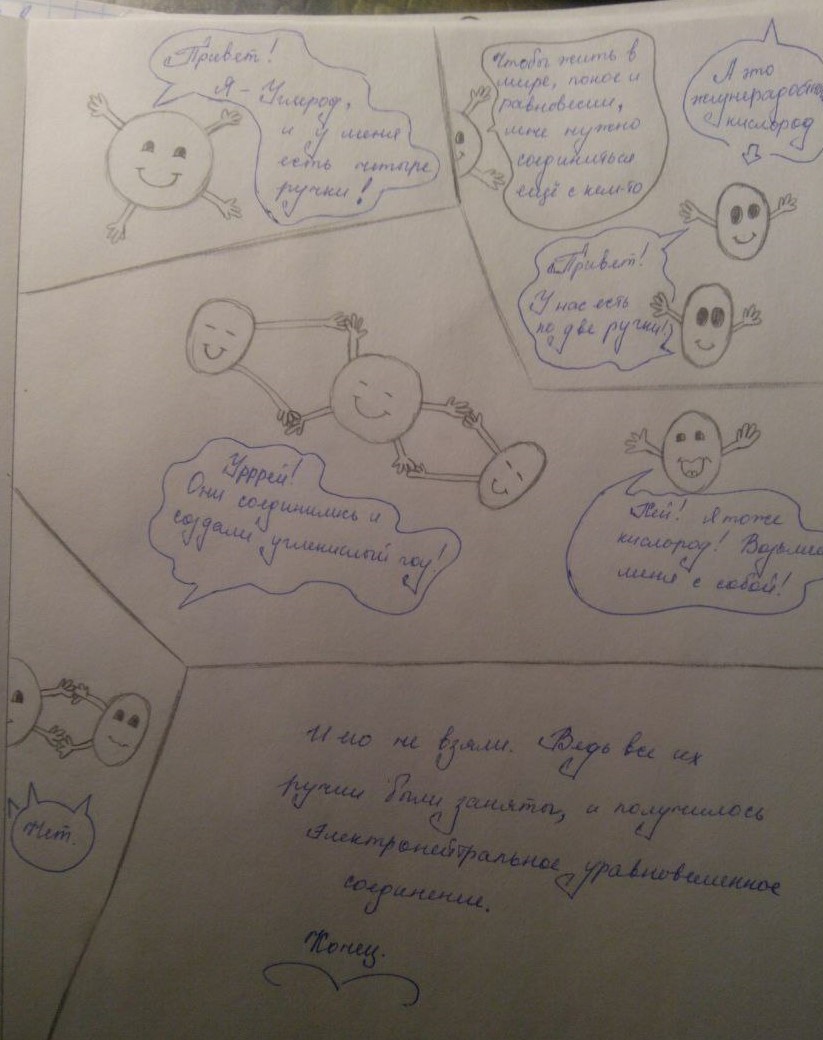 Привет!
Я - Углерод,
и у меня
есть четыре
ручки!
Чтобы жить в
мире, покое и
равновесии,
мне нужно
соединиться
ещё с кем-то
А это
жизнерадостный
кислород
Привет!
У нас есть
по две ручки!
Урррей!
Они соединились и
создали углекислый газ!
Хей! Я тоже
кислород! Возьмите
меня с собой!
Нет.
И его не взяли. Ведь все их
ручки были заняты, и получилось
электронейтральное уравновешенное
соединение.
Конец.